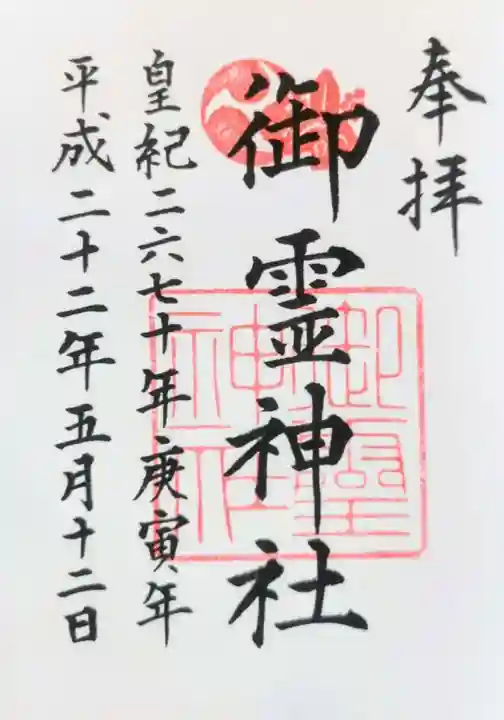 奉拝
御霊神社
皇紀二六七十年庚寅年
平成二十二年五月十二日